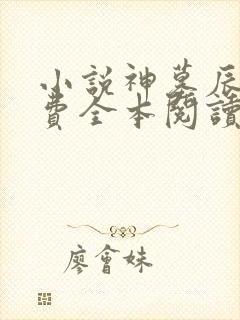 小說神墓辰
費全本閱讀
廖會妹